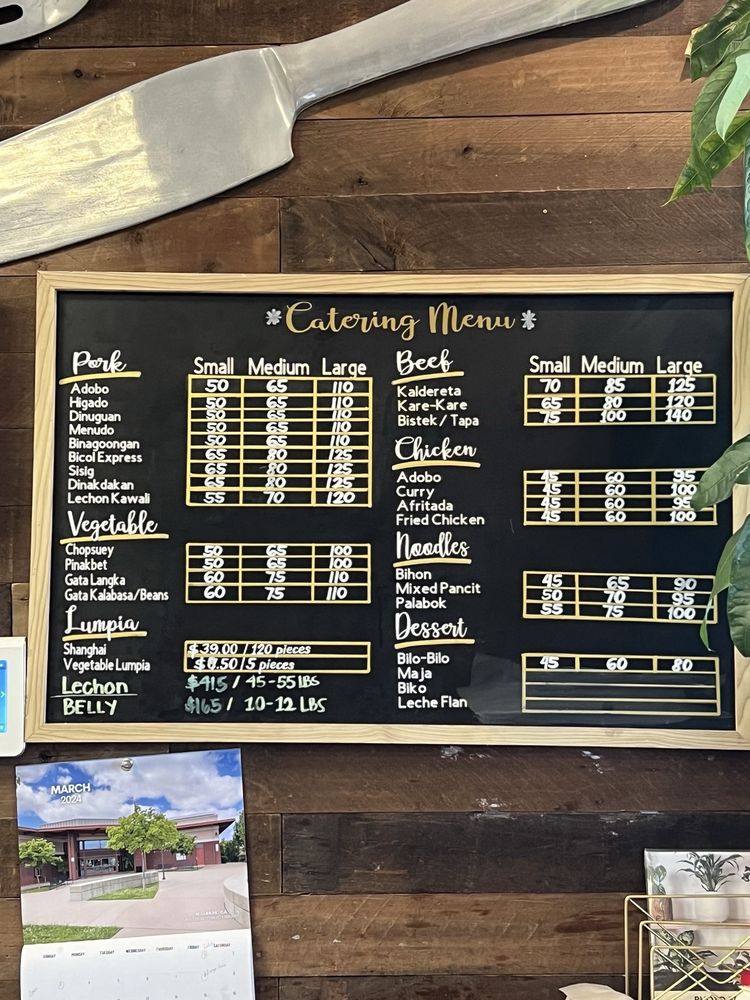 Catering Menu
Pork Small Medium Large
Adobo 50 65 110
Higado 50 65 110
Dinuguan 50 65 110
Menudo 50 65 110
Binagoongan 50 65 110
Bicol Express 65 80 125
Sisig 65 80 125
Dinakdakan 65 80 125
Lechon Kawali 55 70 120
Vegetable
Chopsuey 50 65 100
Pinakbet 50 65 100
Gata Langka 60 75 110
Gata Kalabasa/Beans 60 75 110
Lumpia
Shanghai $39.00 / 120 pieces
Vegetable Lumpia / 5 pieces
Lechon $415 / 45-55 LBS
BELLY $165 / 10-12 LBS
Beef Small Medium Large
Kaldereta 70 85 125
Kare-Kare 65 80 120
Bistek / Tapa 75 100 140
Chicken
Adobo 45 60 95
Curry 45 60 100
Afritada 45 60 95
Fried Chicken 45 60 100
Noodles
Bihon 45 65 90
Mixed Pancit 50 70 95
Palabok 55 75 100
Dessert
Bilo-Bilo 45 60 80
Maja
Biko
Leche Flan
MARCH
2024
SUNDAY MONDAY TUESDAY WEDNESDAY THURSDAY FRIDAY SATURDAY